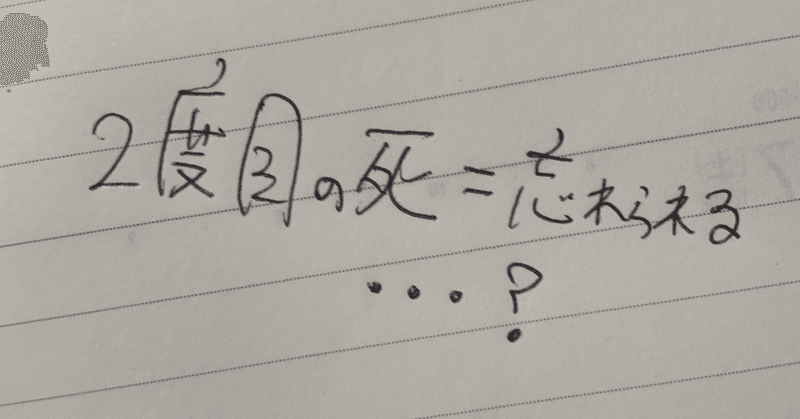 2度目の死=忘れられる
・・・?